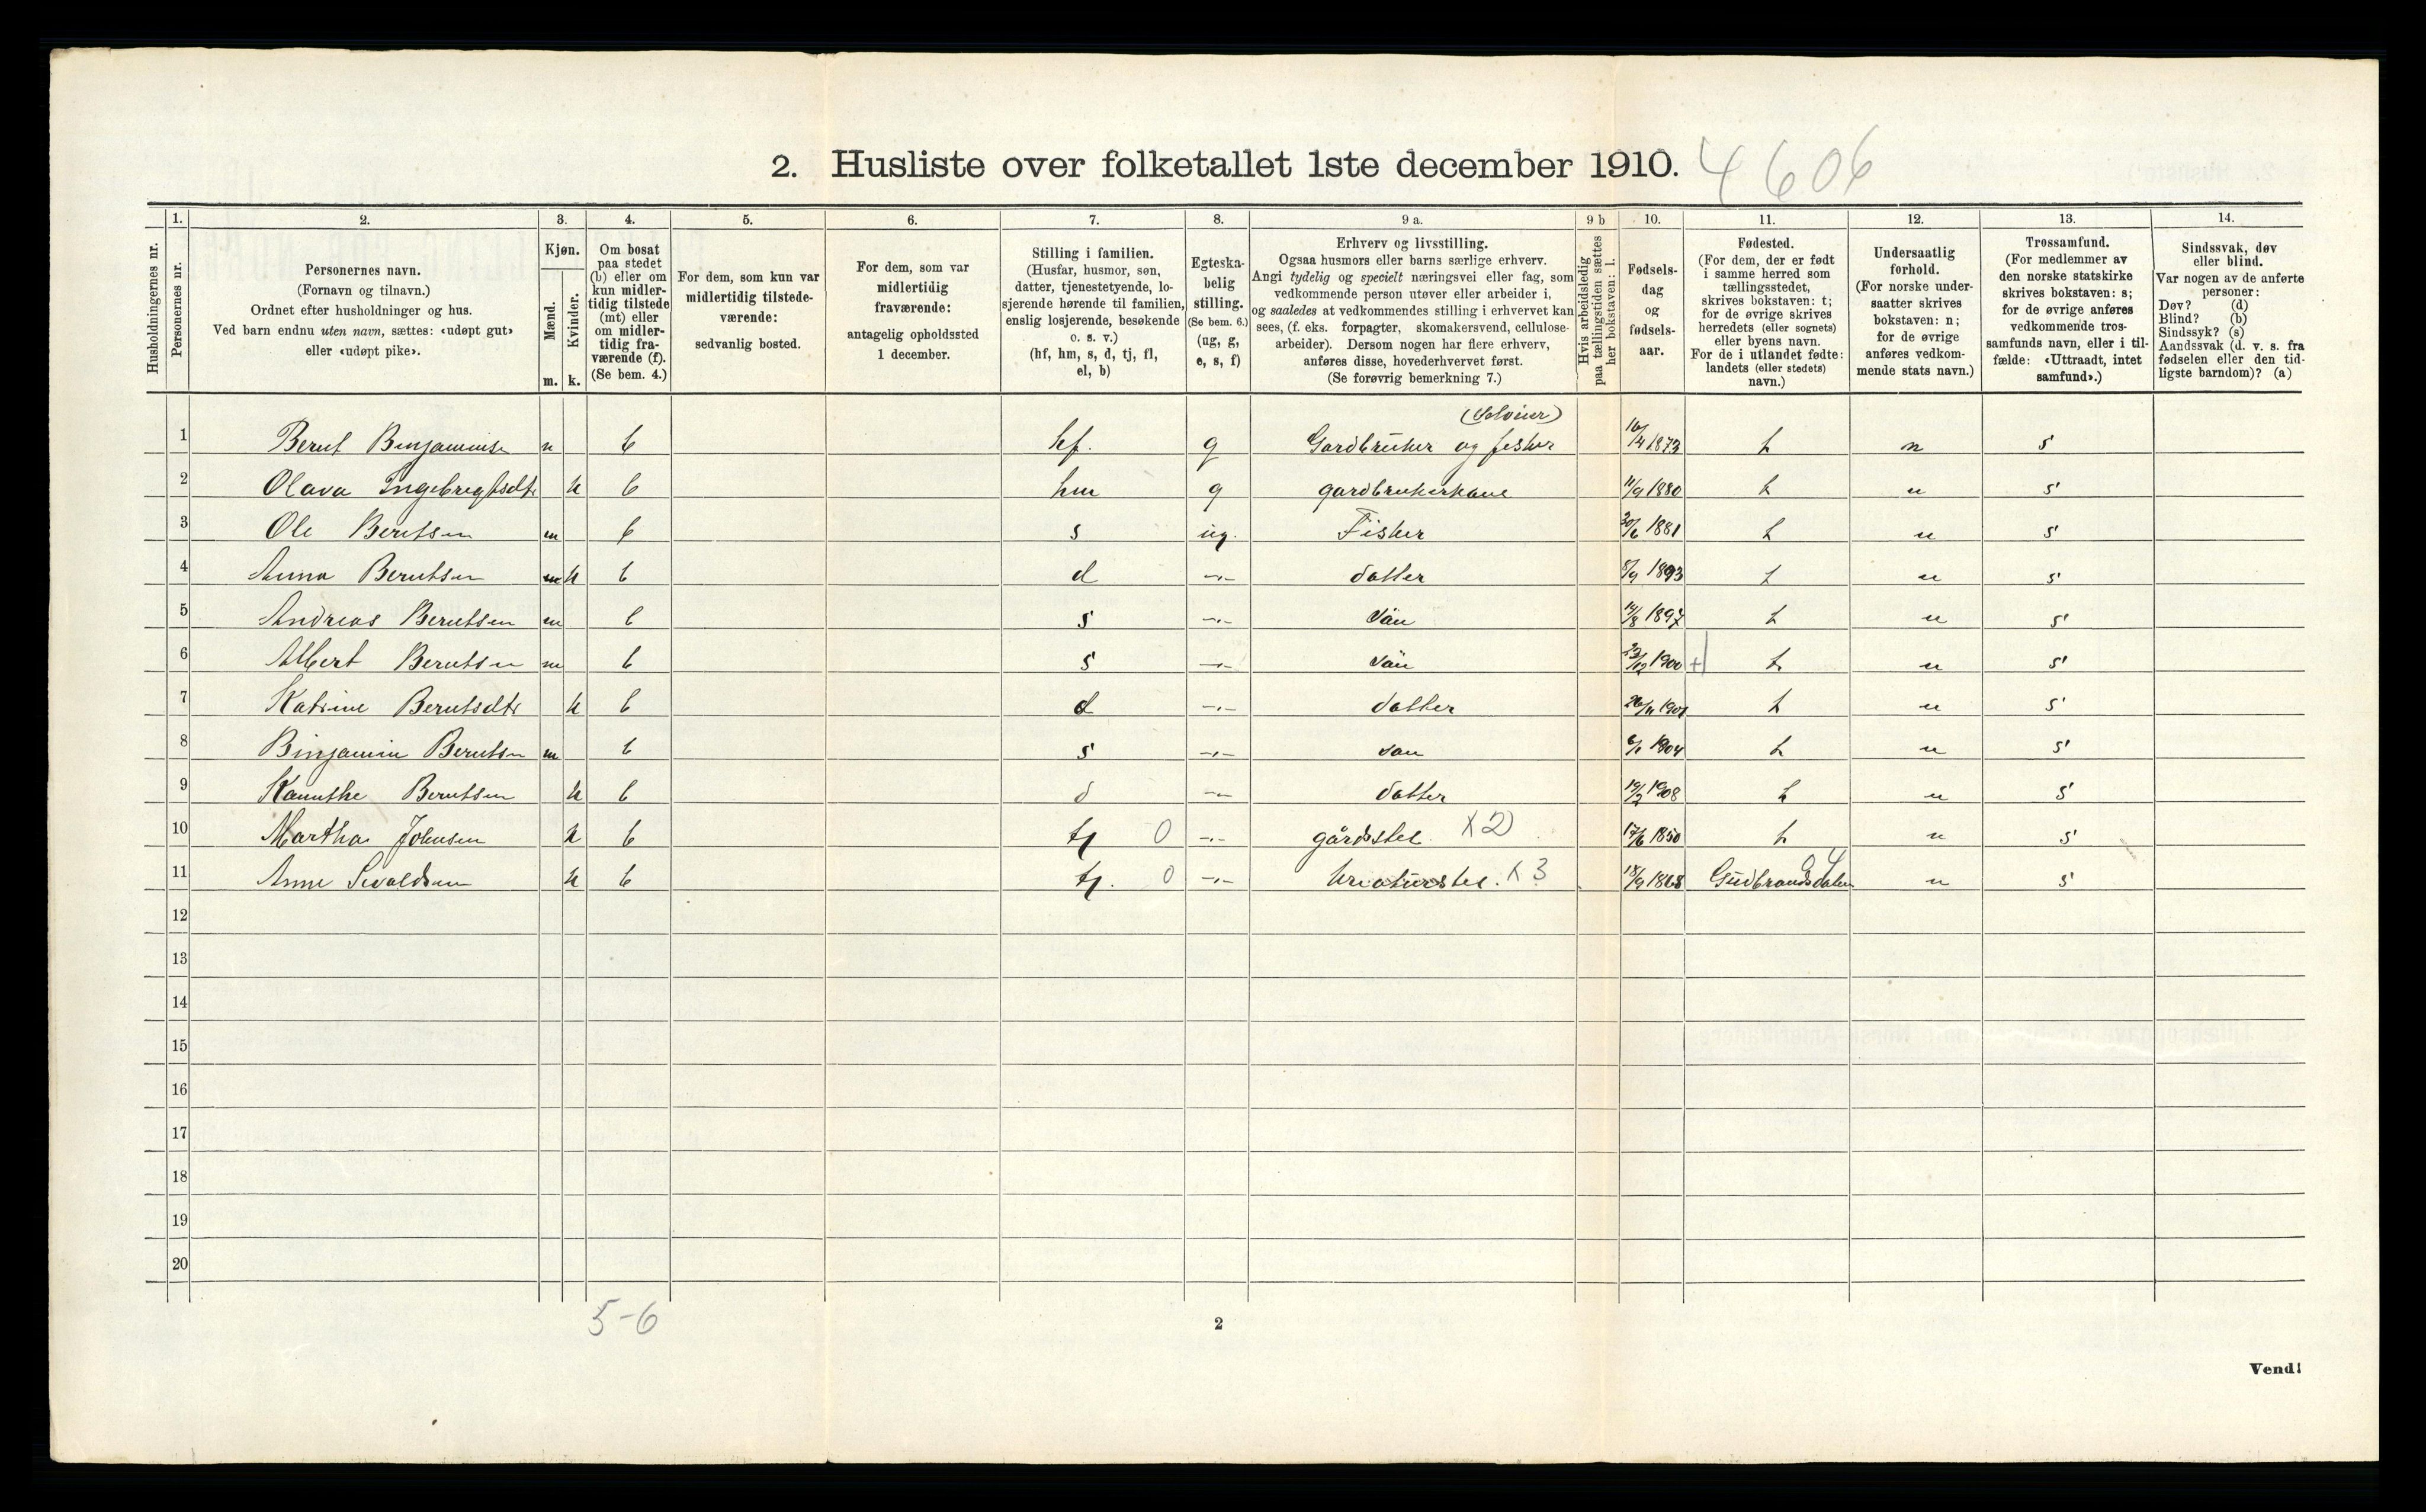 2. Husliste over folketallet 1ste december 1910. 4606
1. 2. 3. 4. 5. 6. 7. 8. 9 a. 9 b 10. 11. 12. 13. 14.
Husholdningernes nr.
Personernes nr.
Personernes navn.
(Fornavn og tilnavn.)
Ordnet efter husholdninger og hus.
Ved barn endnu uten navn, sættes: «udøpt gut»
eller «udøpt pike».
Kjøn.
Mænd.
Kvinder.
m. k.
Om bosat
paa stedet
(b) eller om
kun midler-
tidig tilstede
(mt) eller
om midler-
tidig fra-
værende (f).
(Se bem. 4.)
For dem, som kun var
midlertidig tilstede-
værende:
sedvanlig bosted.
For dem, som var
midlertidig
fraværende:
antagelig opholdssted
1 december.
Stilling i familien.
(Husfar, husmor, søn,
datter, tjenestetyende, lo-
sjerende hørende til familien,
enslig losjerende, besøkende
o. s. v.)
(hf, hm, s, d, tj, fl,
el, b)
Egteska-
belig
stilling.
(Se bem. 6.)
(ug, g,
e, s, f)
Erhverv og livsstilling.
Ogsaa husmors eller barns særlige erhverv.
Angi tydelig og specielt næringsvei eller fag, som
vedkommende person utøver eller arbeider i,
og saaledes at vedkommendes stilling i erhvervet kan
sees, (f. eks. forpagter, skomakersvend, cellulose-
arbeider). Dersom nogen har flere erhverv,
anføres disse, hovederhvervet først.
(Se forøvrig bemerkning 7.)
Hvis arbeidsledig
paa tællingstiden sættes
her bokstaven: l.
Fødsels-
dag
og
fødsels-
aar.
Fødested.
(For dem, der er født
i samme herred som
tællingsstedet,
skrives bokstaven: t;
for de øvrige skrives
herredets (eller sognets)
eller byens navn.
For de i utlandet fødte:
landets (eller stedets)
navn.)
Undersaatlig
forhold.
(For norske under-
saatter skrives
bokstaven: n;
for de øvrige
anføres vedkom-
mende stats navn.)
Trossamfund.
(For medlemmer av
den norske statskirke
skrives bokstaven: s;
for de øvrige anføres
vedkommende tros-
samfunds navn, eller i til-
fælde: «Uttraadt, intet
samfund».)
Sindssvak, døv
eller blind.
Var nogen av de anførte
personer:
Døv? (d)
Blind? (b)
Sindssyk? (s)
Aandssvak (d. v. s. fra
fødselen eller den tid-
ligste barndom)? (a)
(Selveier)
1 Bernt Binjaminse m b hf. g Gardbruker og fisker 1873 t n s
2 Olava Ingebrigtsdtr k b hm g gardbrukerkone 11/9 1880 t n s
3 Ole Berntsen m b s ug. Fisker 30/6 1881 t n s
4 Anna Berntsen k b d -"- datter 8/9 1893 t n s
5 Andreas Berntsen m b s -"- sön 14/8 1897 t n s
6 Albert Berntsen m b s -"- sön 23/12 1900 + t n s
7 Katrine Berntsdtr k b d -"- datter t n s
8 Binjamin Berntsen m b s -"- sön 1904 t n s
9 Kannthe Berntsen k b d -"- datter 19/2 1908 t n s
10 Martha Johnsen k b tj 0 -"- gårdsstel X 2) 17/6 1850 t n s
11 Anne Sivaldsen k b tj. 0 -"- kreaturstel. X 3 18/9 1868 Gudbrandsdalen n s
12
13
14
15
16
17
18
19
20
5-6
2
Vend!